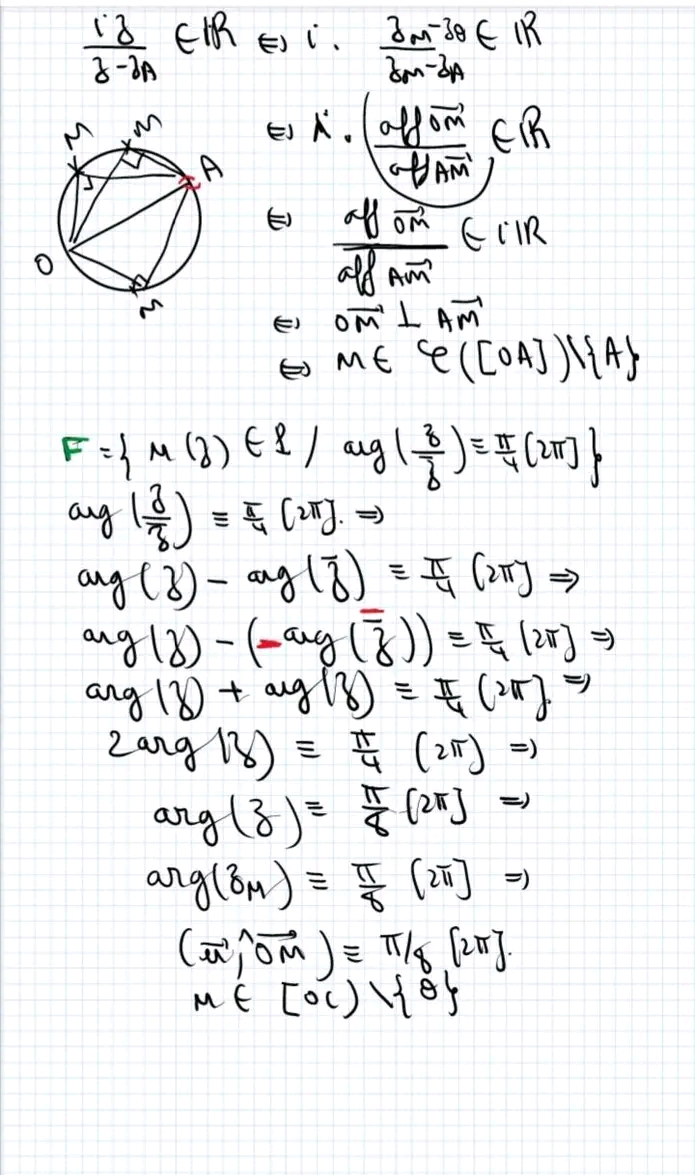 iz/(z-zA) ∈ IR ⇔ i. (zM-zO)/(zM-zA) ∈ IR
⇔ i. (aff OM→/aff AM→) ∈ IR
M M A
⇔ aff OM→/aff AM→ ∈ iIR
O M
⇔ OM→ ⊥ AM→
⇔ M ∈ 𝒞([OA])\{A}
F = { M(z) ∈ P / arg(z/z̄) ≡ π/4 [2π] }
arg(z/z̄) ≡ π/4 [2π]. ⇒
arg(z) - arg(z̄) ≡ π/4 [2π] ⇒
arg(z) - (-arg(z̄̄)) ≡ π/4 [2π] ⇒
arg(z) + arg(z) ≡ π/4 [2π]. ⇒
2arg(z) ≡ π/4 (2π) ⇒
arg(z) ≡ π/8 [2π] ⇒
arg(zM) ≡ π/8 [2π] ⇒
(u→,^OM→) ≡ π/8 [2π].
M ∈ [OC)\{O}